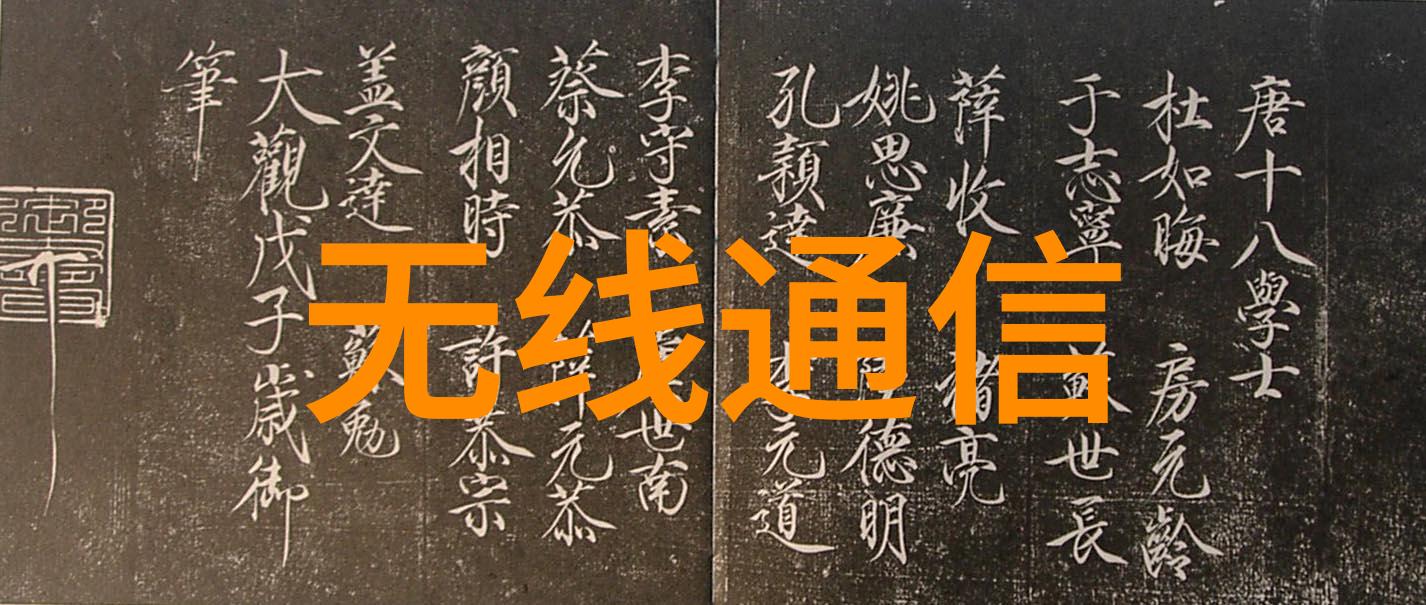 唐十八學士
杜如晦 房元齡
于志寧 蘇世長
薛收 褚亮
姚思廉 德明
孔穎達 李元道
李守素 世南
蔡允恭 薛元恭
顏相時 許恭宗
盖文達 蘇勉
大觀戊子歲御
筆
无线通信